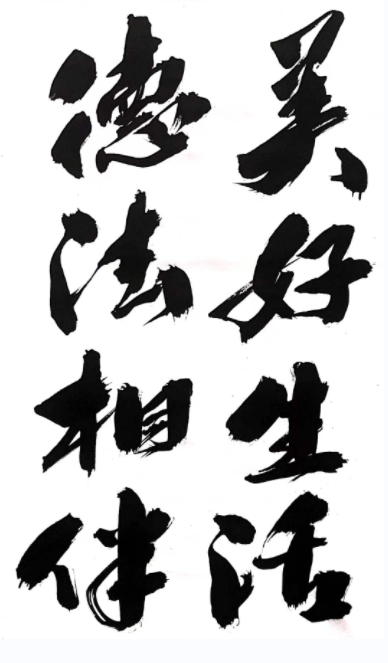 美好生活
德法相伴